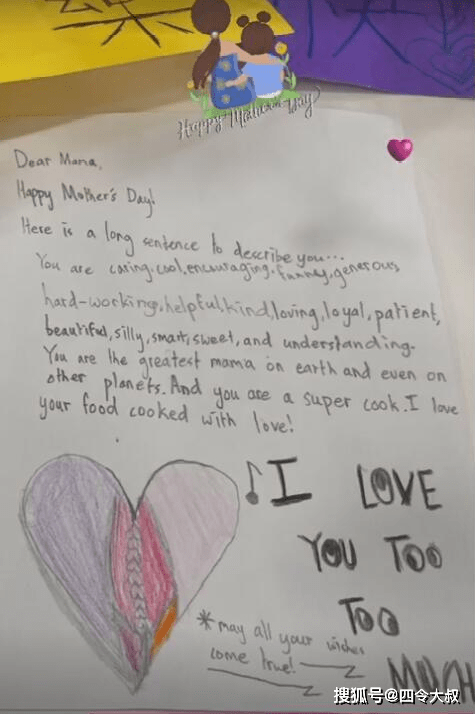 Happy Mother's Day
Dear Mama,
Happy Mother's Day!
Here is a long sentence to describe you...
You are caring, cool, encouraging, funny, generous,
hard-working, helpful, kind, loving, loyal, patient,
beautiful, silly, smart, sweet, and understanding.
You are the greatest mama on earth and even on
other planets. And you are a super cook. I love
your food cooked with love!
♪ I LOVE
YOU TOO
TOO
MUCH
*may all your wishes
come true!
搜狐号@四令大叔